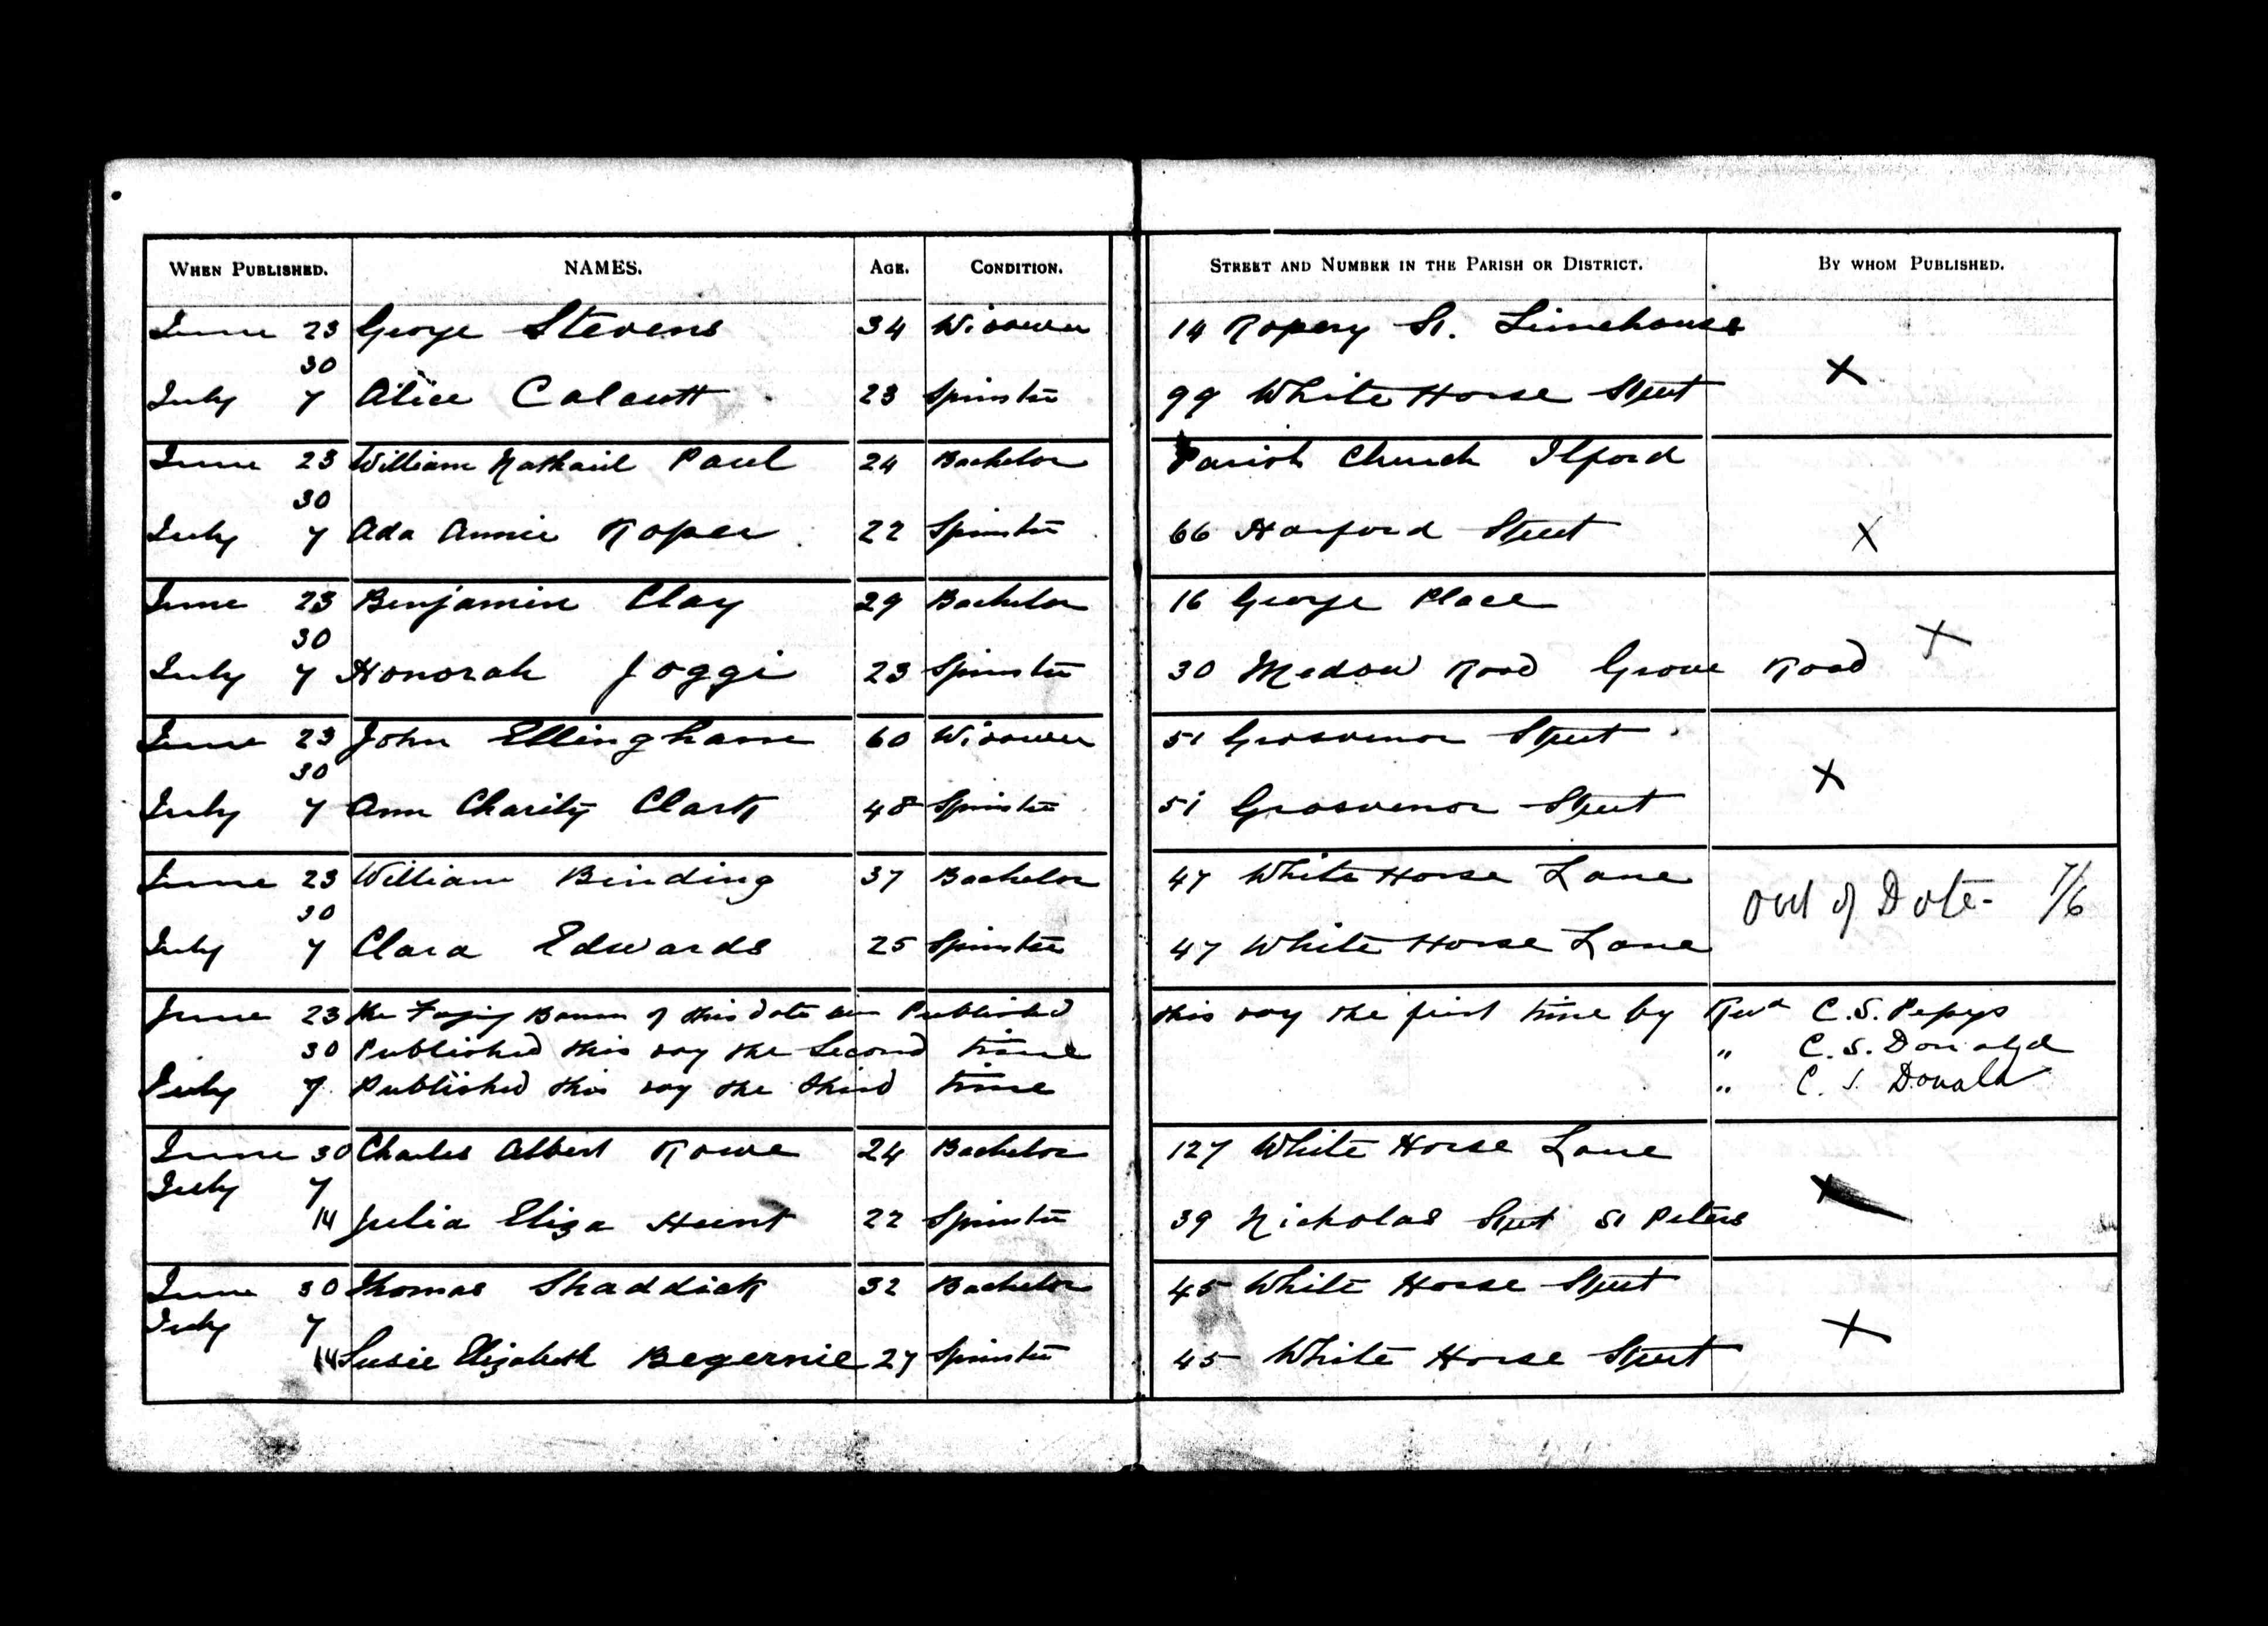 WHEN PUBLISHED. NAMES. AGE. CONDITION. STREET AND NUMBER IN THE PARISH OR DISTRICT. BY WHOM PUBLISHED.
June 23 George Stevens 34 Widower 14 Ropery St. Limehouse
30 X
July 7 Alice Calcutt 23 Spinster 99 White Horse Street
June 23 William Nathaniel Paul 24 Bachelor Parish Church Ilford
30
July 7 Ada Annie Roper 22 Spinster 66 Harford Street X
June 23 Benjamin Clay 29 Bachelor 16 George Place
30 X
July 7 Honorah Joggi 23 Spinster 30 Medow Road Grove Road
June 23 John Ellingham 60 Widower 51 Grosvenor Street
30 X
July 7 Ann Charity Clark 48 Spinster 51 Grosvenor Street
June 23 William Binding 37 Bachelor 47 White Horse Lane
30 Out of Date - 7/6
July 7 Clara Edwards 25 Spinster 47 White Horse Lane
June 23 the Banns of this date Published this day the first time by Revd C.S. Pepys
30 Published this day the Second time " C.S. Donald
July 7 Published this day the third time " C.S. Donald
June 30 Charles Albert Rowe 24 Bachelor 127 White Horse Lane
July 7 X
14 Julia Eliza Hunt 22 Spinster 39 Nicholas Street St Peters
June 30 Thomas Shaddick 32 Bachelor 45 White Horse Street
July 7 X
14 Susie Elizabeth Begernie 27 Spinster 45 White Horse Street